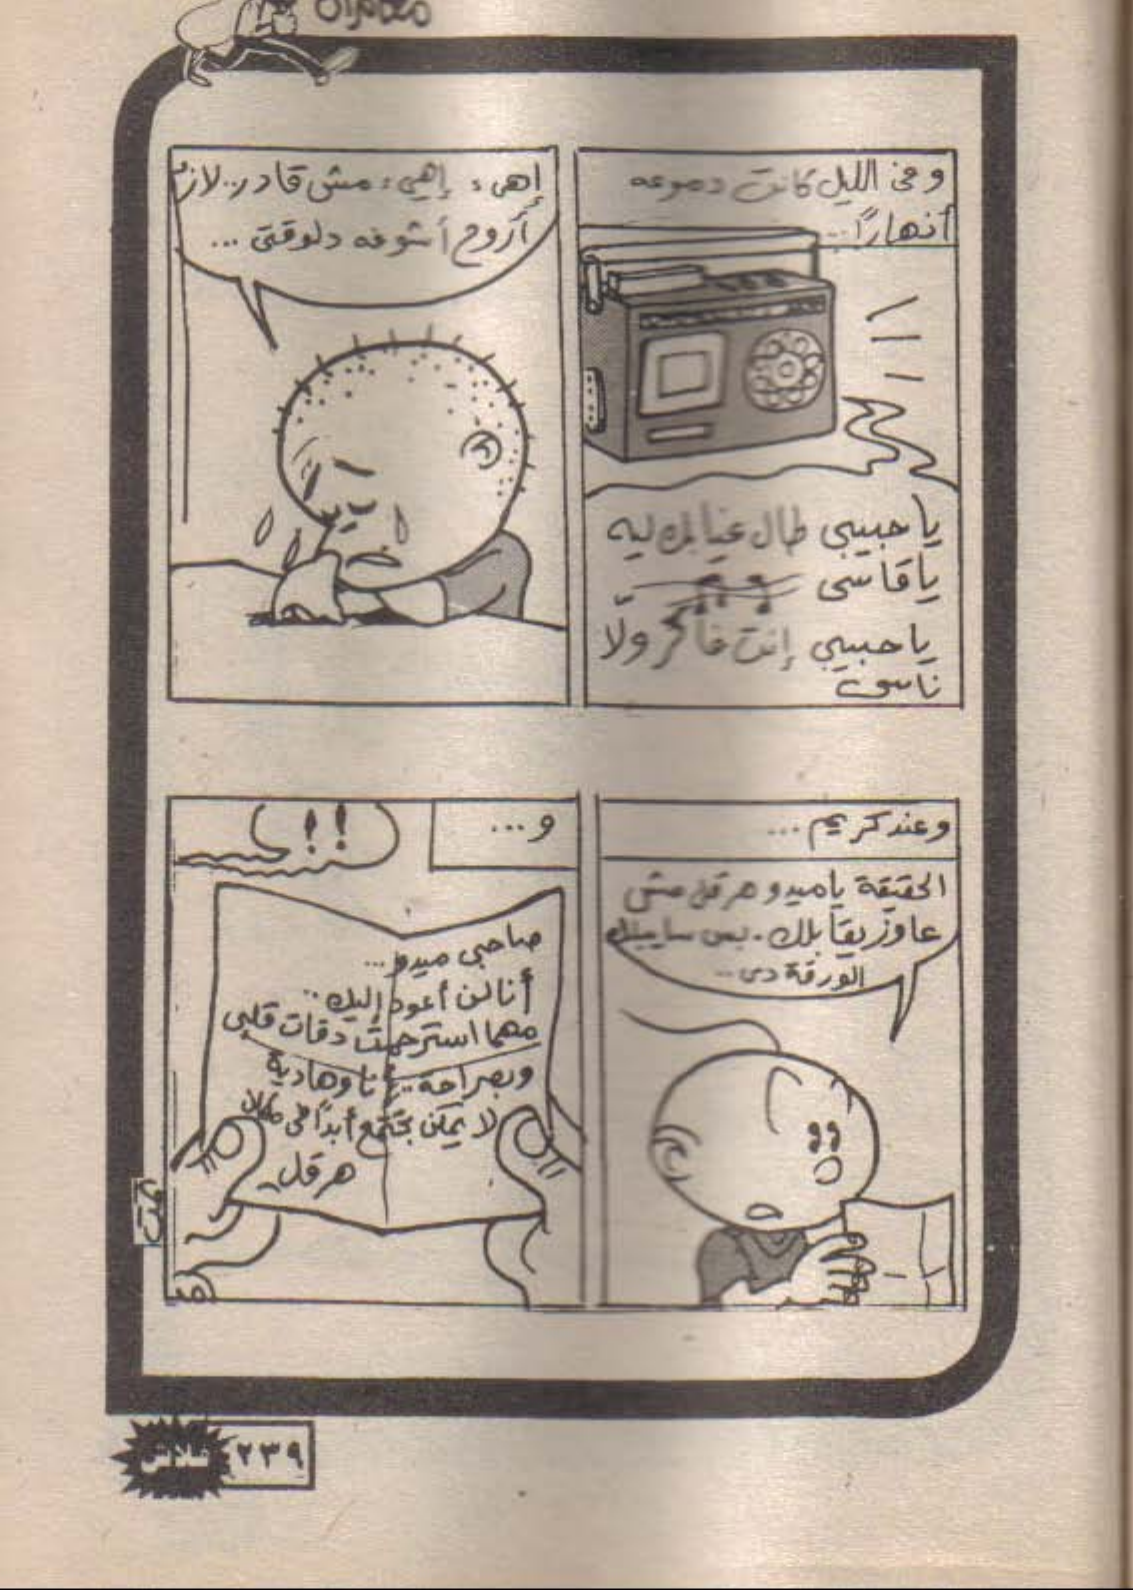 مغامرات
و فى الليل كانت دموعه
أنهارًا...
ياحبيبي طال غيابك ليه
ياقاسى
ياحبيبي إنت فاكر ولّا
ناسى
إهىء إهىء مش قادر.. لازم
أروح أشوفه دلوقتى ...
وعند كريم ...
الحقيقة ياميدو هرقل مش
عاوز يقابلك . بس سايبلك
الورقة دى ..
و ...
!!
صاحبى ميدو...
أنا لن أعود إليك ..
مهما استرحمت دقات قلبى
وبصراحة .. أنا وهادية
لا يمكن نجتمع أبدًا فى مكان
هرقل
تمت
٢٣٩
فلاش